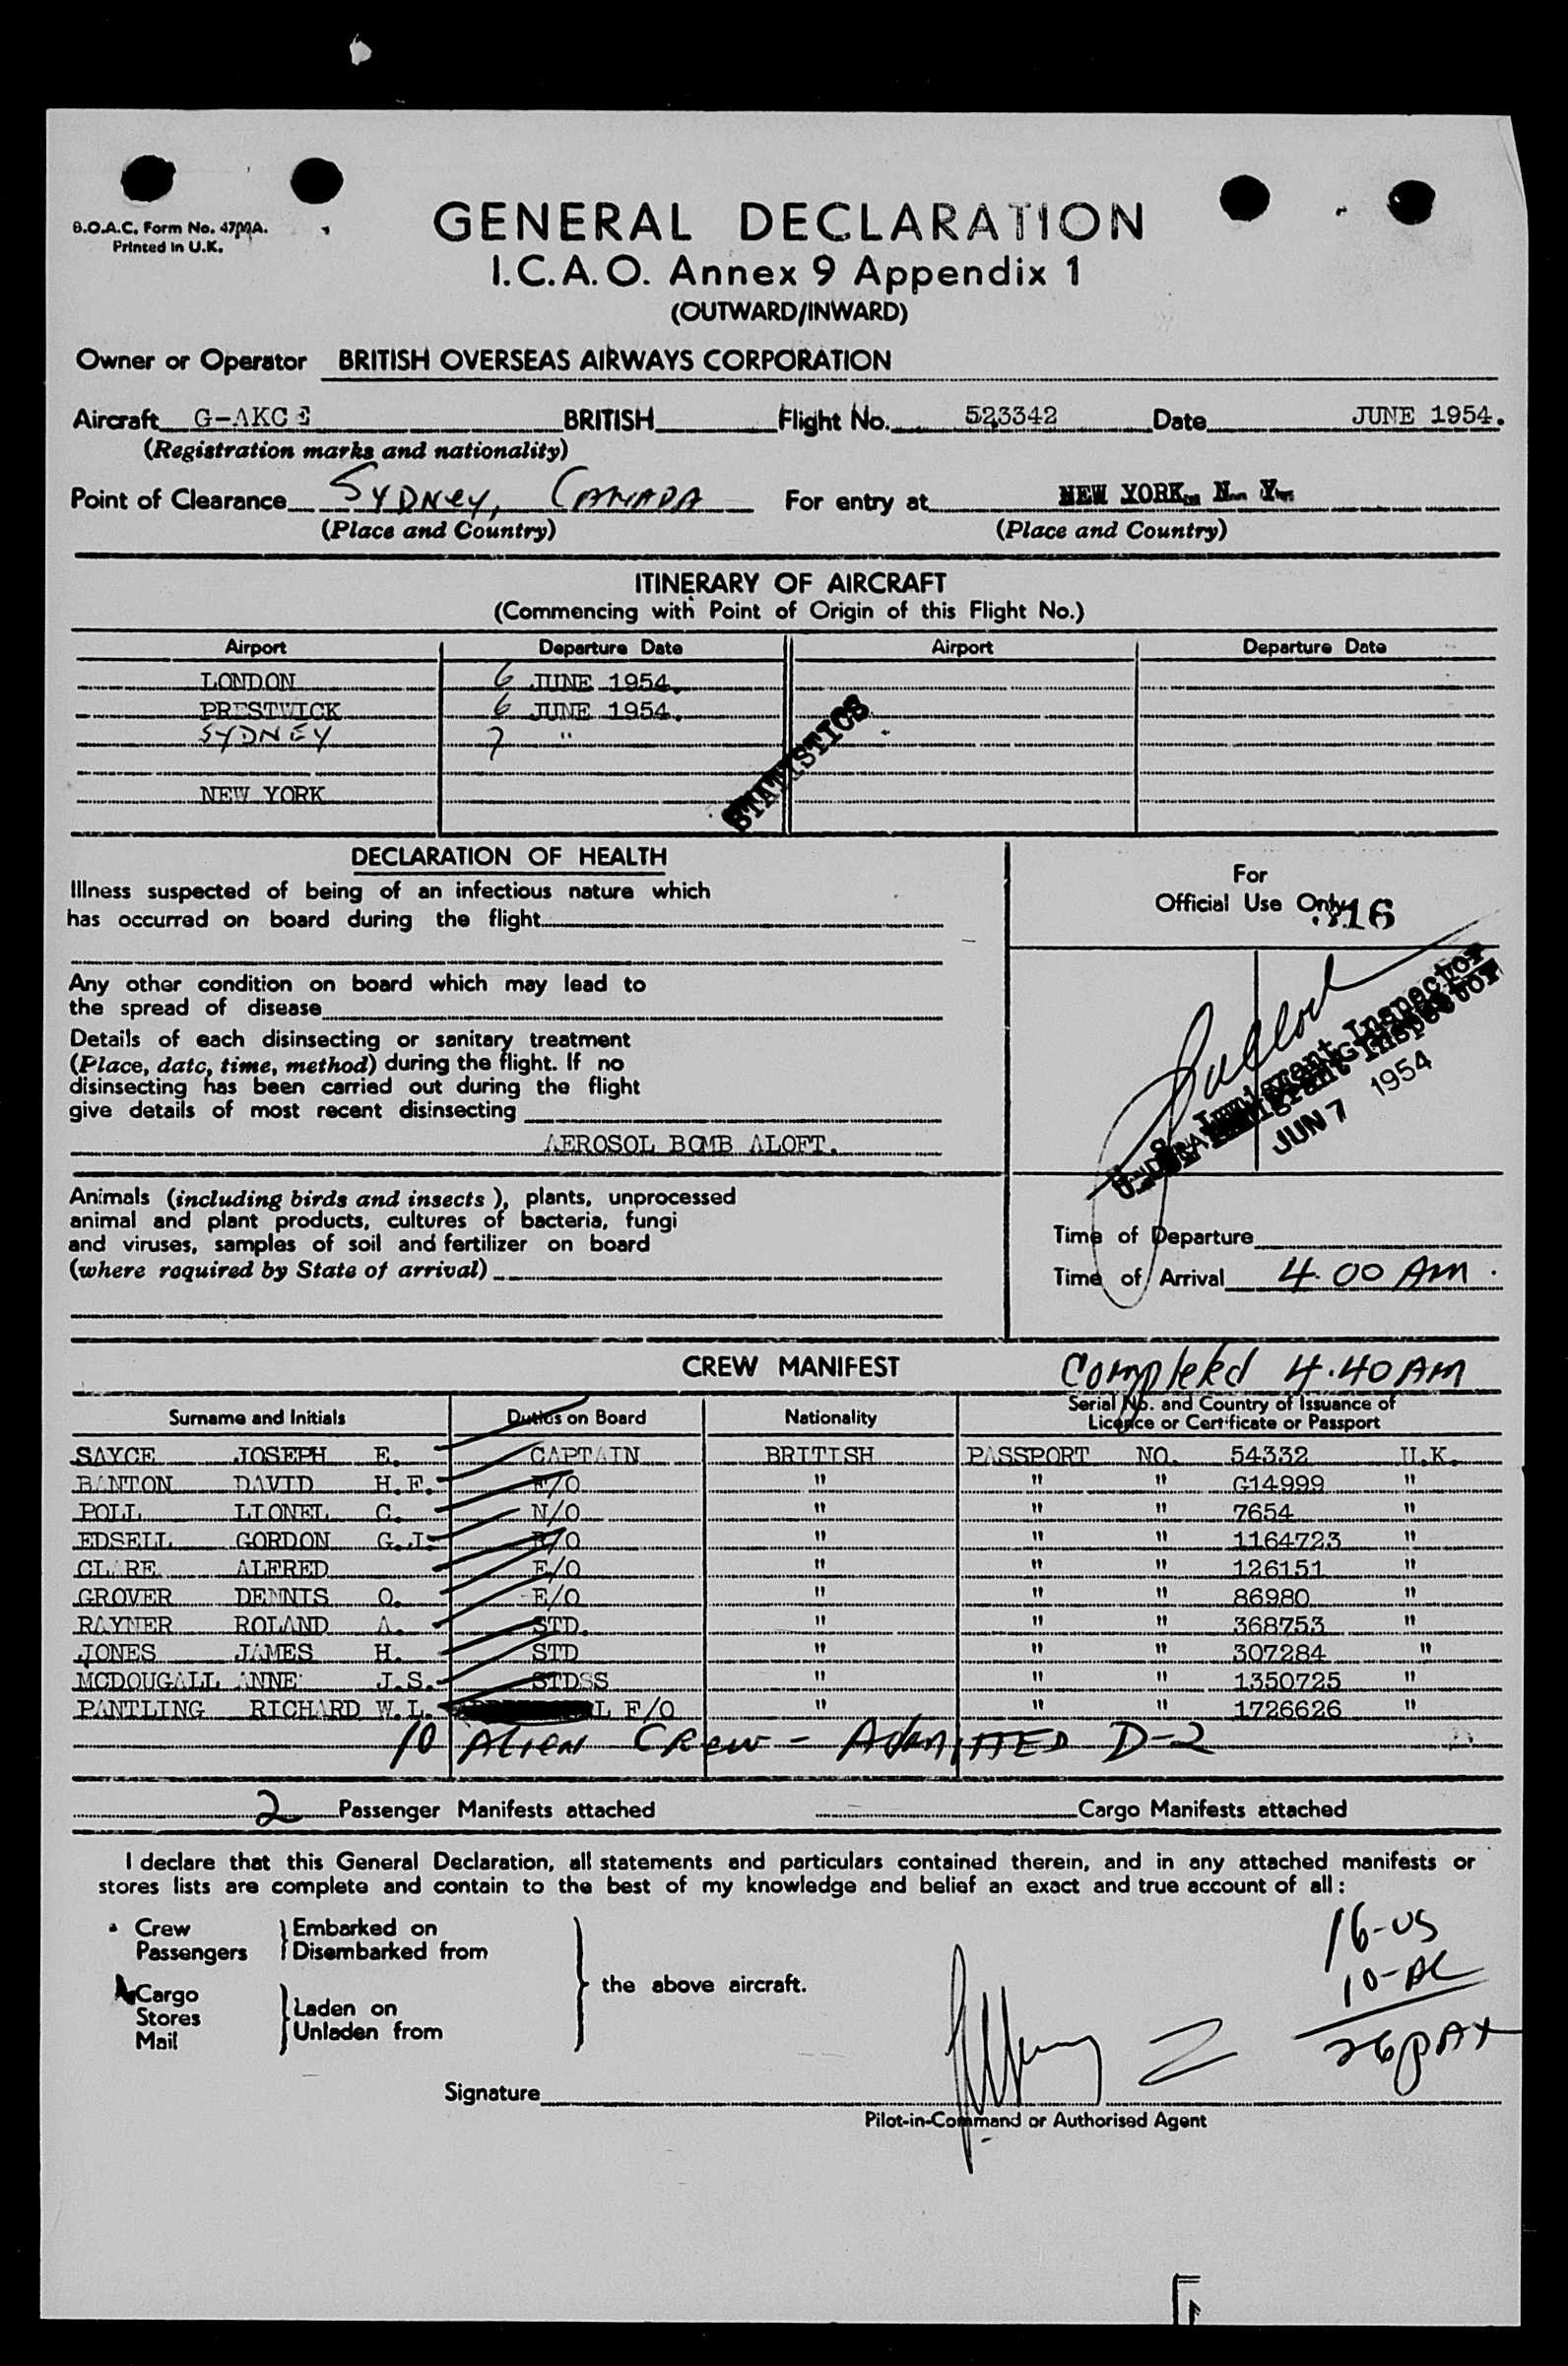 B.O.A.C. Form No. 4700A.
Printed in U.K.
GENERAL DECLARATION
I.C.A.O. Annex 9 Appendix 1
(OUTWARD/INWARD)
Owner or Operator BRITISH OVERSEAS AIRWAYS CORPORATION
Aircraft G-AKCE BRITISH Flight No. 523342 Date JUNE 1954.
(Registration marks and nationality)
Point of Clearance SYDNEY, CANADA For entry at NEW YORK, N. Y.
(Place and Country) (Place and Country)
ITINERARY OF AIRCRAFT
(Commencing with Point of Origin of this Flight No.)
Airport Departure Date Airport Departure Date
LONDON 6 JUNE 1954.
PRESTWICK 6 JUNE 1954.
SYDNEY 7 "
NEW YORK
STATISTICS
DECLARATION OF HEALTH
Illness suspected of being of an infectious nature which
has occurred on board during the flight
Any other condition on board which may lead to
the spread of disease
Details of each disinsecting or sanitary treatment
(Place, date, time, method) during the flight. If no
disinsecting has been carried out during the flight
give details of most recent disinsecting
AEROSOL BOMB ALOFT.
Animals (including birds and insects), plants, unprocessed
animal and plant products, cultures of bacteria, fungi
and viruses, samples of soil and fertilizer on board
(where required by State of arrival)
For
Official Use Only
16
Immigrant Inspector
JUN 7 1954
Time of Departure
Time of Arrival 4.00 AM.
CREW MANIFEST Completed 4.40 AM
Surname and Initials Duties on Board Nationality Serial No. and Country of Issuance of Licence or Certificate or Passport
SAYCE JOSEPH E. CAPTAIN BRITISH PASSPORT NO. 54332 U.K.
BANTON DAVID H.F. F/O " " " G14999 "
POLL LIONEL C. N/O " " " 7654 "
EDSELL GORDON G.J. R/O " " " 1164723 "
CLARE ALFRED E/O " " " 126151 "
GROVER DENNIS O. E/O " " " 86980 "
RAYNER ROLAND A. STD. " " " 368753 "
JONES JAMES H. STD " " " 307284 "
MCDOUGALL ANNE J.S. STDSS " " " 1350725 "
PANTLING RICHARD W.L. F/O " " " 1726626 "
10 ALIEN CREW - ADMITTED D-2
2 Passenger Manifests attached Cargo Manifests attached
I declare that this General Declaration, all statements and particulars contained therein, and in any attached manifests or
stores lists are complete and contain to the best of my knowledge and belief an exact and true account of all:
Crew
Passengers
Embarked on
Disembarked from
Cargo
Stores
Mail
Laden on
Unladen from
the above aircraft.
16-US
10-AL
26 PAX
Signature
Pilot-in-Command or Authorised Agent